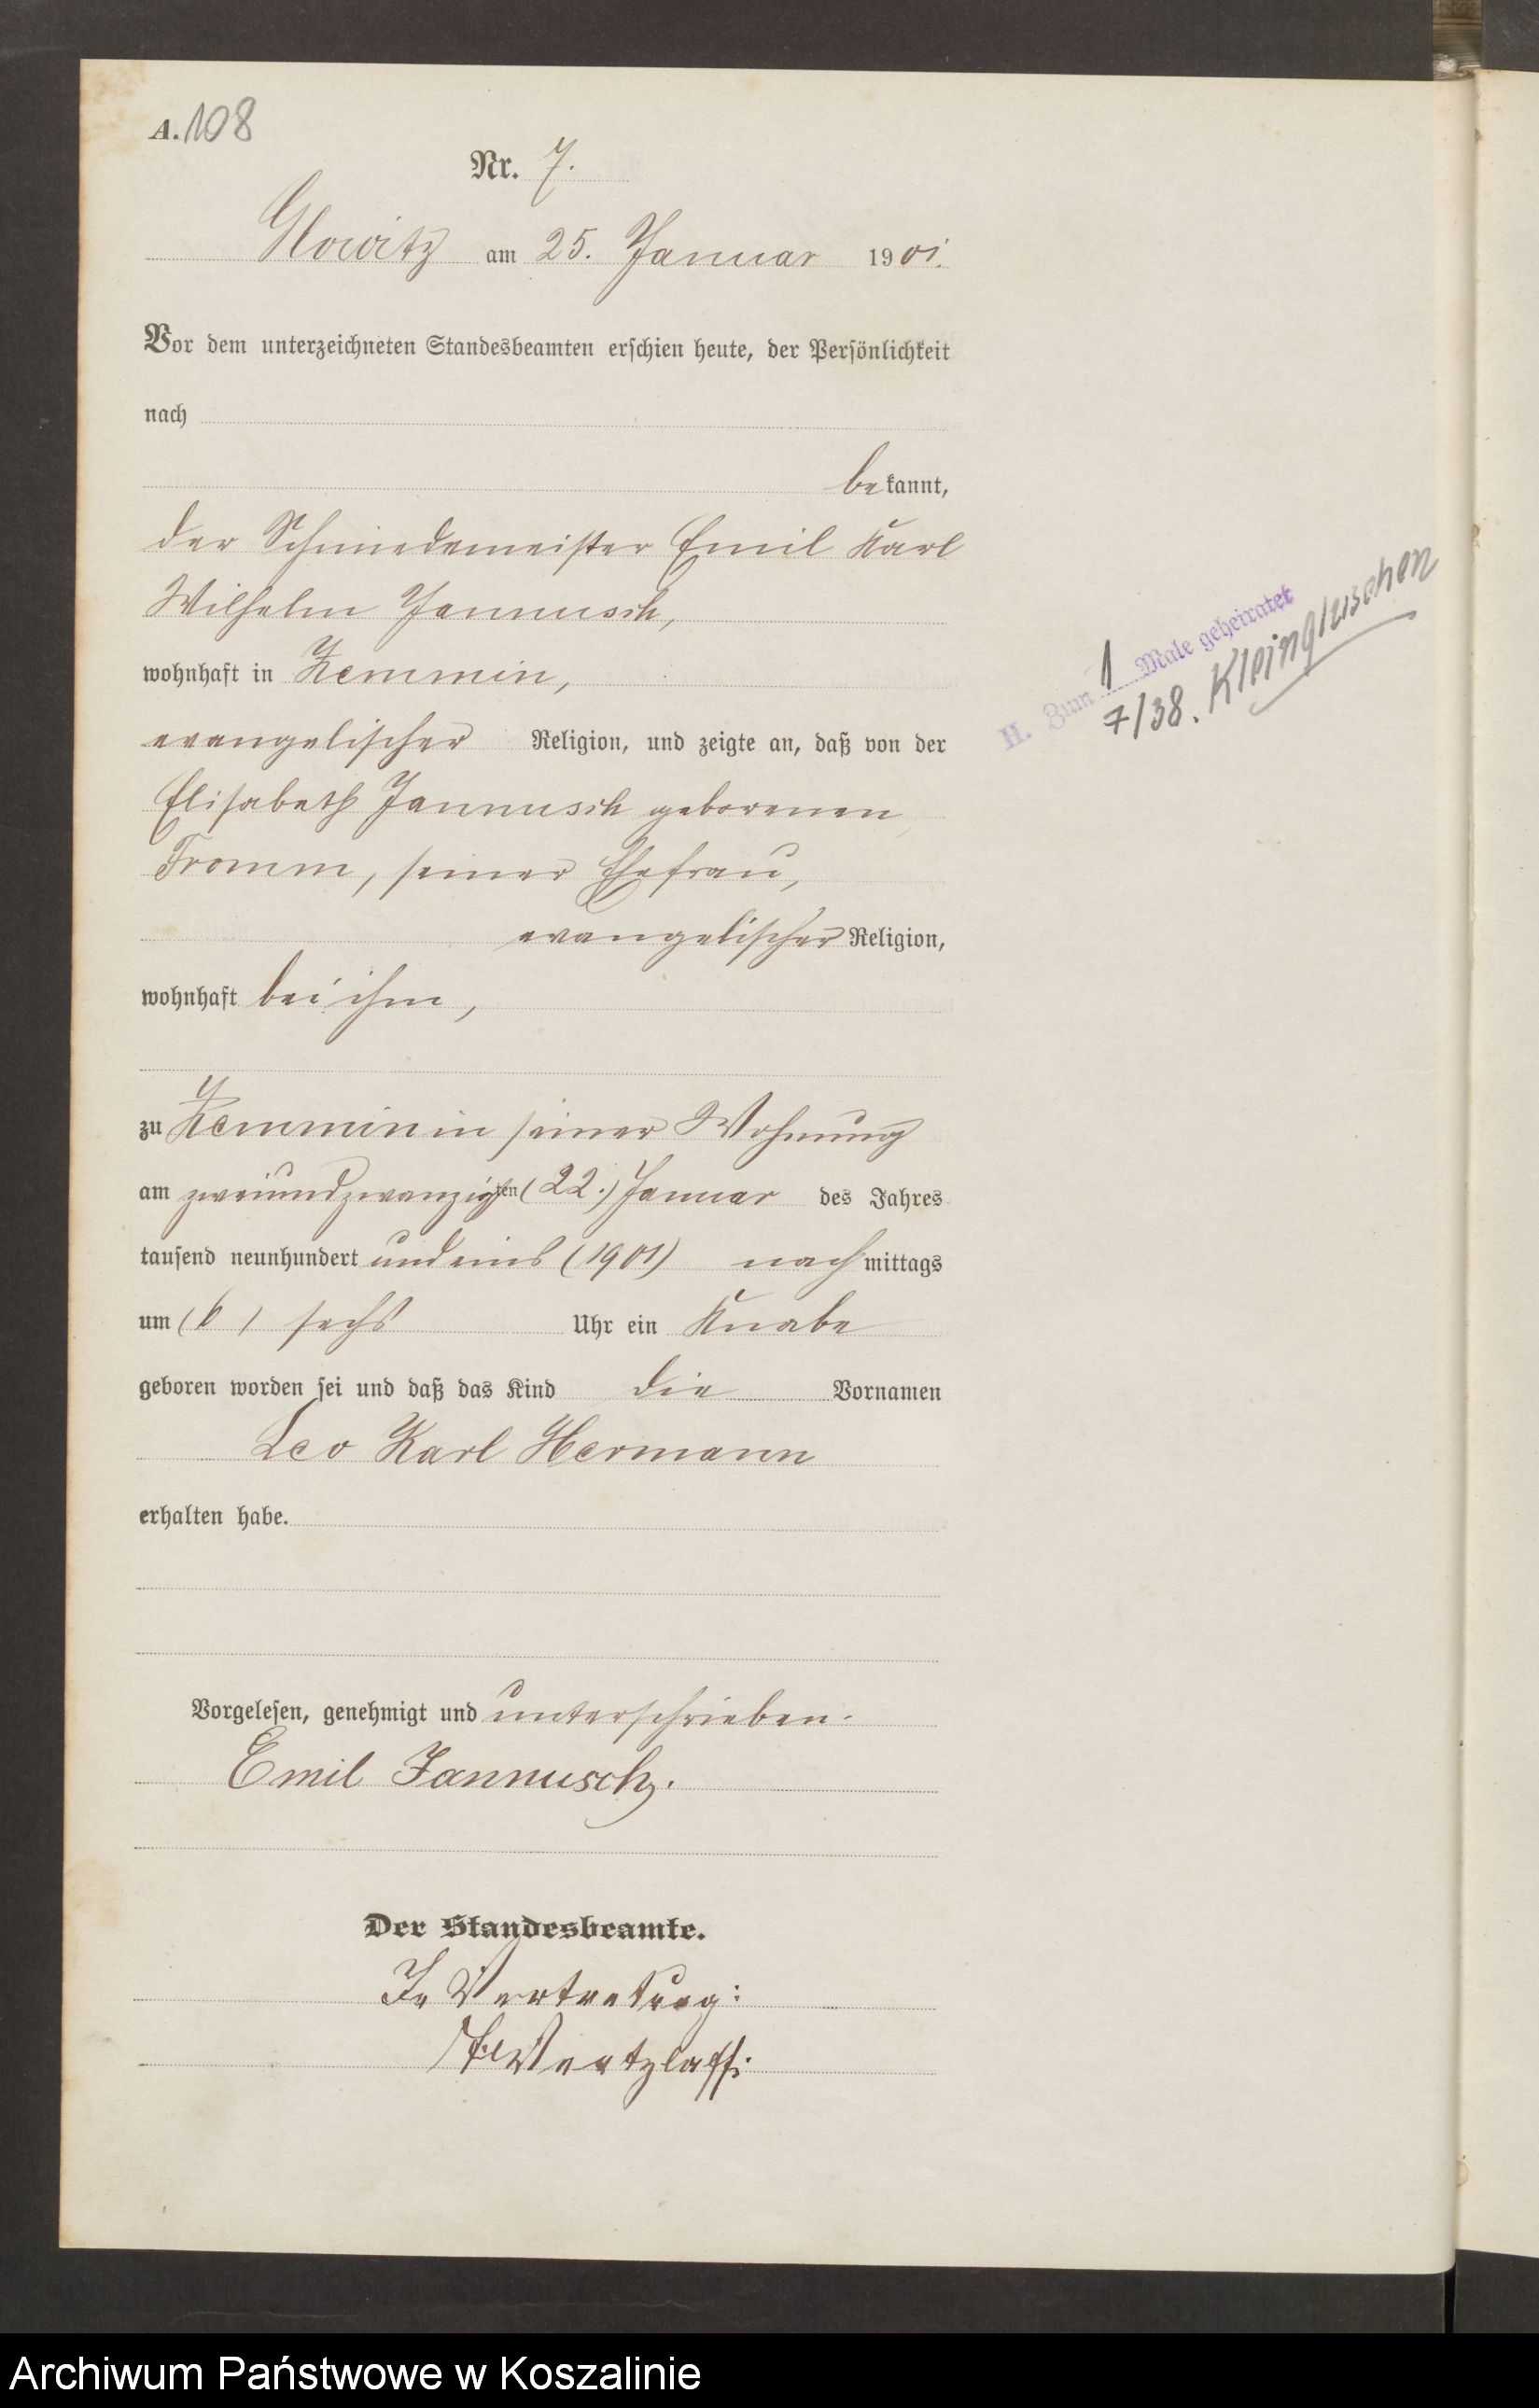 A. 108
Nr. 7.
Glowitz am 25. Januar 1901.
Vor dem unterzeichneten Standesbeamten erschien heute, der Persönlichkeit
nach
bekannt,
der Schmiedemeister Emil Karl
Wilhelm Jannusch,
wohnhaft in Zemmin,
evangelischer Religion, und zeigte an, daß von der
Elisabeth Jannusch geborenen
Fromm, seiner Ehefrau,
evangelischer Religion,
wohnhaft bei ihm,
zu Zemmin in seiner Wohnung
am zweiundzwanzigsten (22.) Januar des Jahres
tausend neunhundert und eins (1901) nachmittags
um (6) sechs Uhr ein Knabe
geboren worden sei und daß das Kind die Vornamen
Leo Karl Hermann
erhalten habe.
Vorgelesen, genehmigt und unterschrieben.
Emil Jannusch.
Der Standesbeamte.
In Vertretung:
H. Zum 1 Male geheiratet
7/38. Kleingluschen
Archiwum Państwowe w Koszalinie